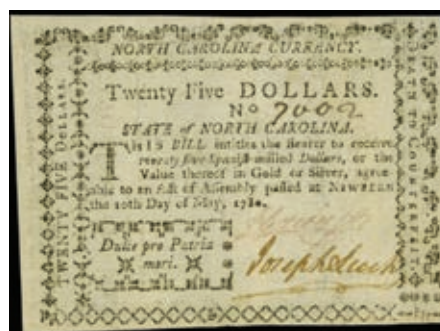 NORTH CAROLINA CURRENCY.
Twenty Five DOLLARS.
No 7002
STATE of NORTH CAROLINA.
THIS BILL entitles the Bearer to receive
twenty five Spanish milled Dollars, or the
Value thereof in Gold or Silver, agree-
able to an Act of Assembly passed at NEWBERN
the 10th Day of May, 1780.
Dulce pro Patria
mori.
Joseph
TWENTY FIVE DOLLARS.
DEATH TO COUNTERFEIT.